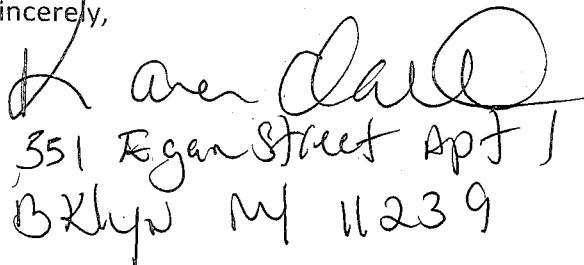 incerely,
Karen Clarke
351 Egan Street Apt 1
BKlyn NY 11239